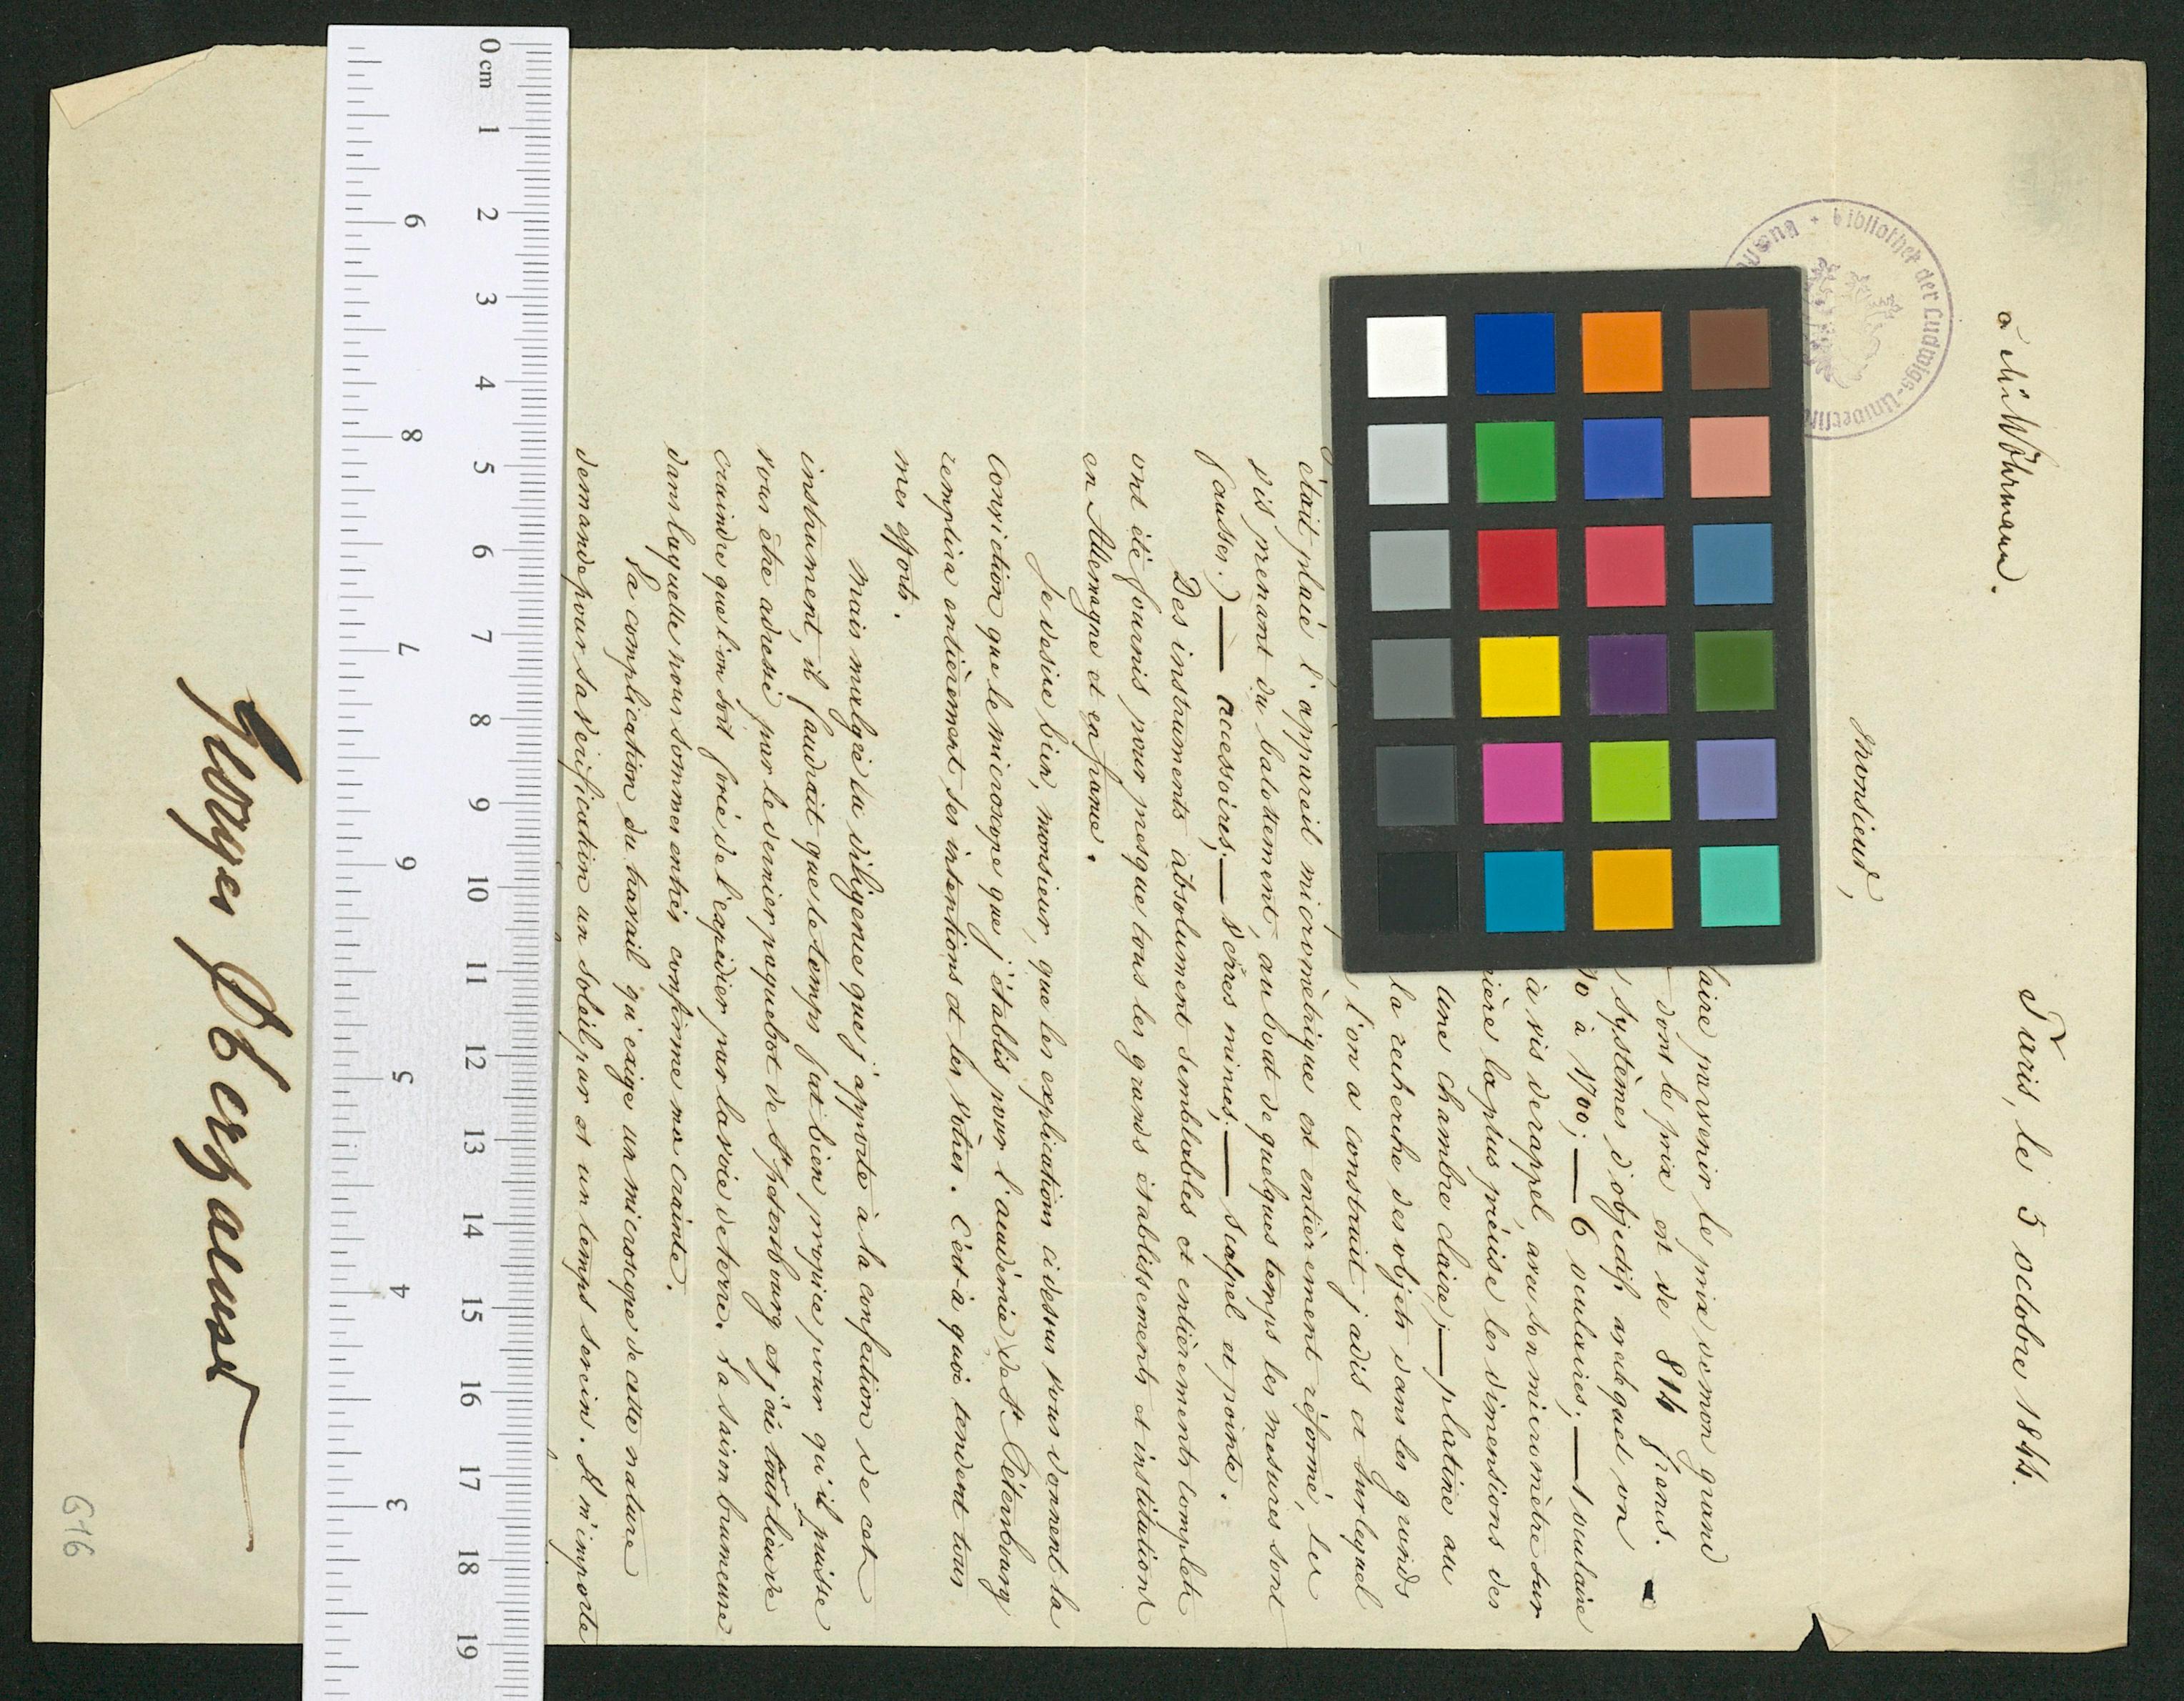 à Mr Wöhrmann.
Paris, le 5 octobre 1844.
Monsieur,
bibliothek der Ludwigs-Universität
laire parvenir le prix de mon grand
dont le prix est de 814 francs.
systèmes d'objectifs avec quel on
50 à 1700; — 6 oculaires; — 1 oculaire
à vis de rappel, avec son micromètre sur
ière la plus précise les dimensions des
une chambre claire; — platine au
la recherche des objets dans les grands
l'on a construit jadis et sur lequel
était placé l'appareil micromètrique est entièrement réformé, les
vis prenant du balottement, au bout de quelques temps les mesures sont
fausses.) — accessoires; — verres minces; — scalpel et pointe.
Des instruments absolument semblables et entièrements complets
ont été fournis pour presque tous les grands établissements et institutions
en Allemagne et en france.
Je desire bien, monsieur, que les explications cidessus vous donnent la
conviction que le microscope que j'établis pour l'académie de St Pétersbourg
remplira entièrement ses intentions et les vôtres. C'est à quoi tendent tous
mes efforts.
Mais malgré la diligence que j'apporte à la confection de cet
instrument, il faudrait que le temps fut bien propice pour qu'il puisse
vous être adressé par le dernier paquebot de St petersbourg et j'ai tout lieu de
craindre que l'on soit forcé de l'expédier par la voie de terre. La saison brumeuse
dans laquelle nous sommes entrés confirme ma crainte.
La complication du travail qu'exige un microscope de cette nature
demande pour sa vérification un soleil pur et un temps serein. Il m'importe
Georges Oberhaeuser
616
0 cm 1 2 3 4 5 6 7 8 9 10 11 12 13 14 15 16 17 18 19
9 8 7 6 5 4 3